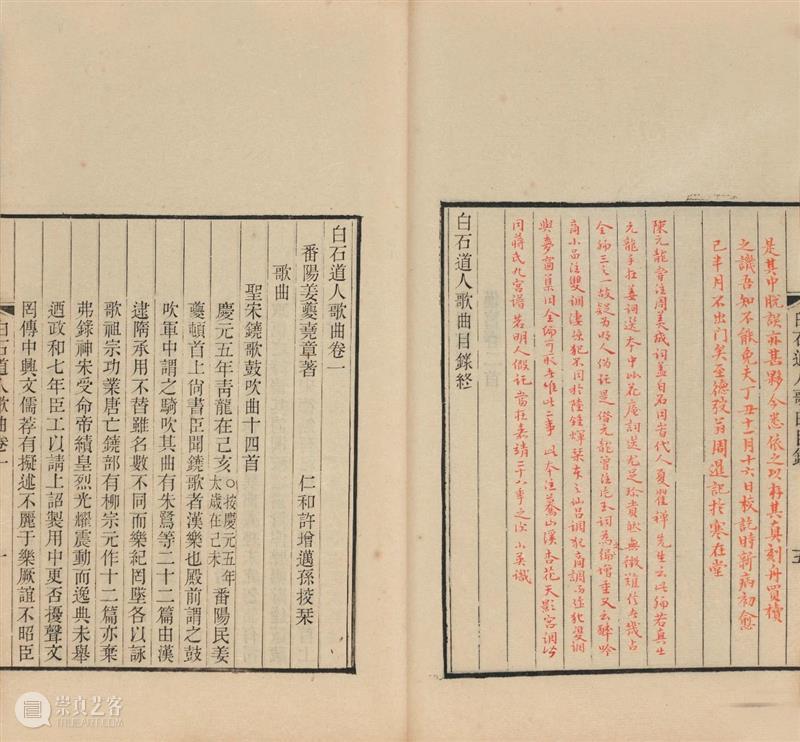 白石道人歌曲目錄
五
是其中脫誤亦甚夥今悉依之以存其真刻舟買櫝
之譏吾知不能免夫丁丑十一月十六日校訖時新病初愈
已半月不出門矣至德弢翁周暹記於寒在堂
陳元龍曾注周美成詞蓋白石同省代人夏瞿禪先生云此編若真出
元龍手在姜詞選本中山花庵詞選尤足珍貴然無徵難信去幾占
全編三之一故疑為明人偽託是借元龍曾注片玉詞為編增重又云醉吟
商小品注雙調淒涼犯不同於陸鍾輝栞本之仙呂調犯商調而近北雙調
與夢窗集旧全編可取者唯此二事此本注驀山溪杏花天影宮調皆
同蔣氏九宮譜若明人假託當在嘉靖二十六年之後
白石道人歌曲目錄終
白石道人歌曲卷一
番陽姜夔堯章著 仁和許增邁孫挍栞
歌曲
聖宋鐃歌鼓吹曲十四首
慶元五年靑龍在己亥○按慶元五年太歲在己未番陽民姜
夔頓首上尙書臣聞鐃歌者漢樂也殿前謂之鼓
吹軍中謂之騎吹其曲有朱鷺等二十二篇由漢
逮隋承用不替雖名數不同而樂紀罔墜各以詠
歌祖宗功業唐亡鐃部有柳宗元作十二篇亦棄
弗錄神宋受命帝績皇烈光耀震動而逸典未舉
迺政和七年臣工以請上詔製用中更否擾聲文
罔傳中興文儒荐有擬述不麗于樂厥誼不昭臣
白石道人歌曲卷一
一
崇真艺客
TRUEART.COM